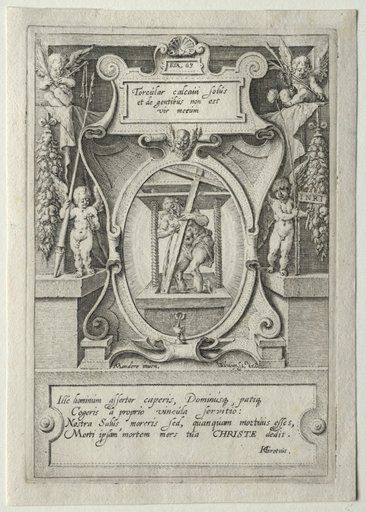 ESA. 63.
Torcular calcavi solus
et de gentibus non est
vir mecum
INRI
KMandere inven.
Ille hominum assertor caperis, Dominusq, patiq
Cogeris à proprio vincula servitio:
Nostra Salus moreris sed, quanquam mortuus esses,
Morti ipsam mortem mors tua CHRISTE dedit.